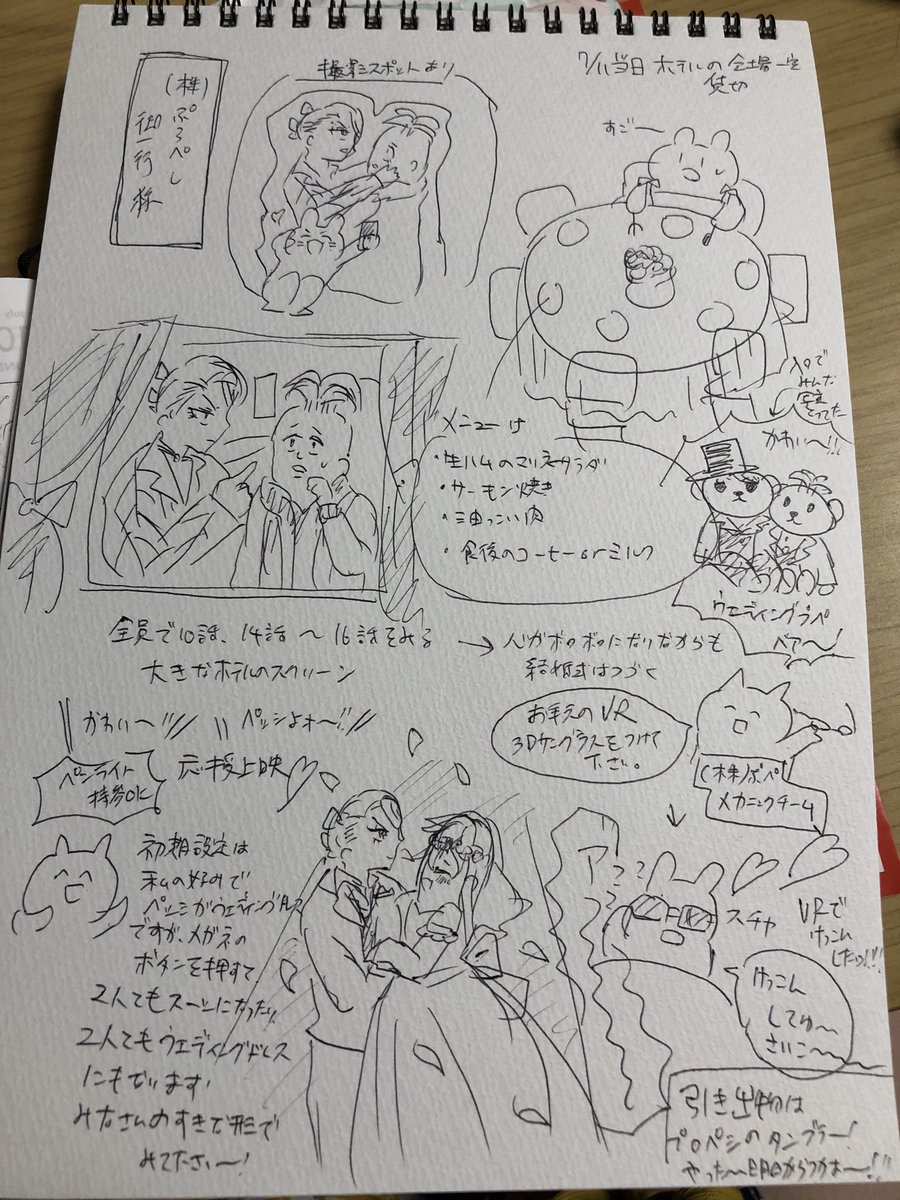 (株)ぷろぺし
御一行様
撮影スポットあり
7/11当日 ホテルの会場一室
貸切
すご〜
メニューは
・生ハムのマリネサラダ
・サーモン焼き
・油っこい肉
・食後のコーヒーorミルク
みんな
写真
とってた
かわい〜!!
ウエディングラペ
ベア〜!
全員で10話、14話〜16話をみる
大きなホテルのスクリーン
→心がボロボロになりながらも
結婚式はつづく
かわい〜!!
ペッシよォ〜!!
ペンライト
持参OK
応援上映
お手元のVR
3Dサングラスをつけて
下さい。
(株)ぷぺ
メカニックチーム
初期設定は
私の好みで
ペッシがウエディングドレス
ですが、メガネの
ボタンを押すて
2人でもスーツになったり
2人でもウエディングドレス
にもでいます
みなさんのすきな形で
みてたさい〜!
スチャ
VRで
けっこん
したッ!!!
けっこん
してゅ〜
さいこ〜〜
引き出物は
プロペシのタンブラー!
やった〜明日からつかお〜!!